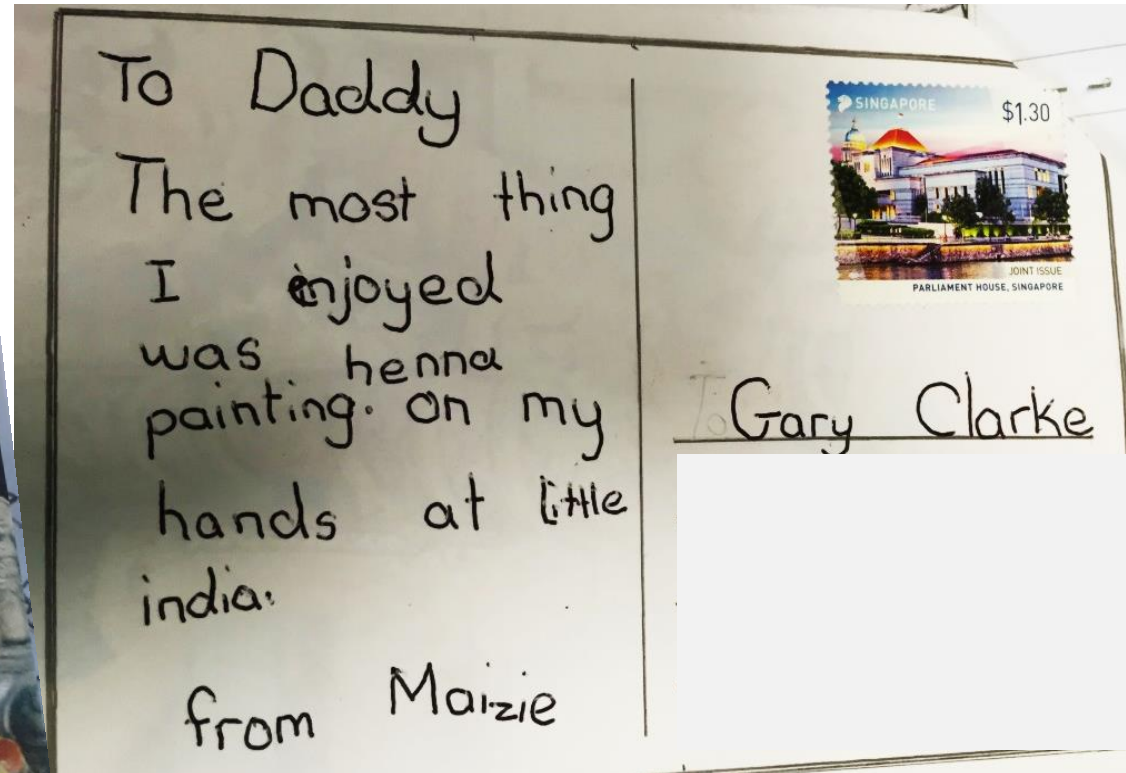 To Daddy
The most thing
I enjoyed
was henna
painting. on my
hands at little
india.
from Maizie
SINGAPORE
$1.30
JOINT ISSUE
PARLIAMENT HOUSE, SINGAPORE
To Gary Clarke